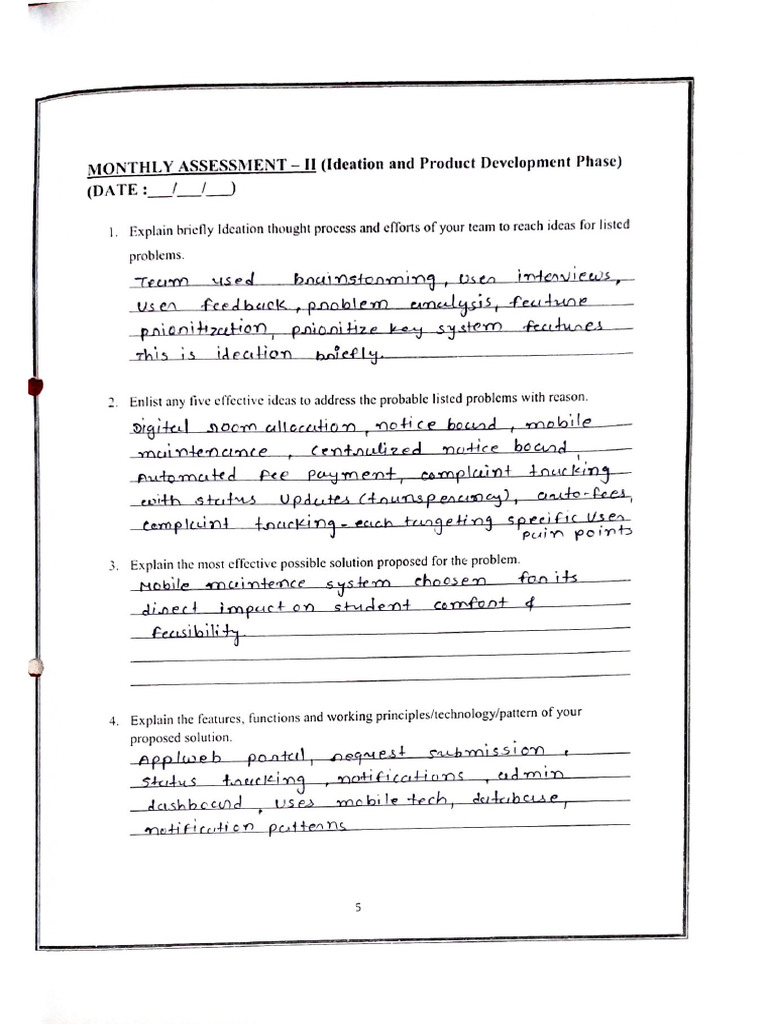 MONTHLY ASSESSMENT – II (Ideation and Product Development Phase)
(DATE :__/__/__)
1. Explain briefly Ideation thought process and efforts of your team to reach ideas for listed
problems.
Team used brainstorming, user interviews,
user feedback, problem analysis, feature
prioritization, prioritize key system features
This is ideation briefly.
2. Enlist any five effective ideas to address the probable listed problems with reason.
Digital room allocation, notice board, mobile
maintenance, centralized notice board,
Automated fee payment, complaint tracking
with status updates (transperancy), auto-fees,
complaint tracking - each targeting specific user
pain points
3. Explain the most effective possible solution proposed for the problem.
Mobile maintence system choosen for its
direct impact on student comfort &
feasibility.
4. Explain the features, functions and working principles/technology/pattern of your
proposed solution.
App/web portal, request submission,
status tracking, notifications, admin
dashboard, uses mobile tech, database,
notification patterns
5